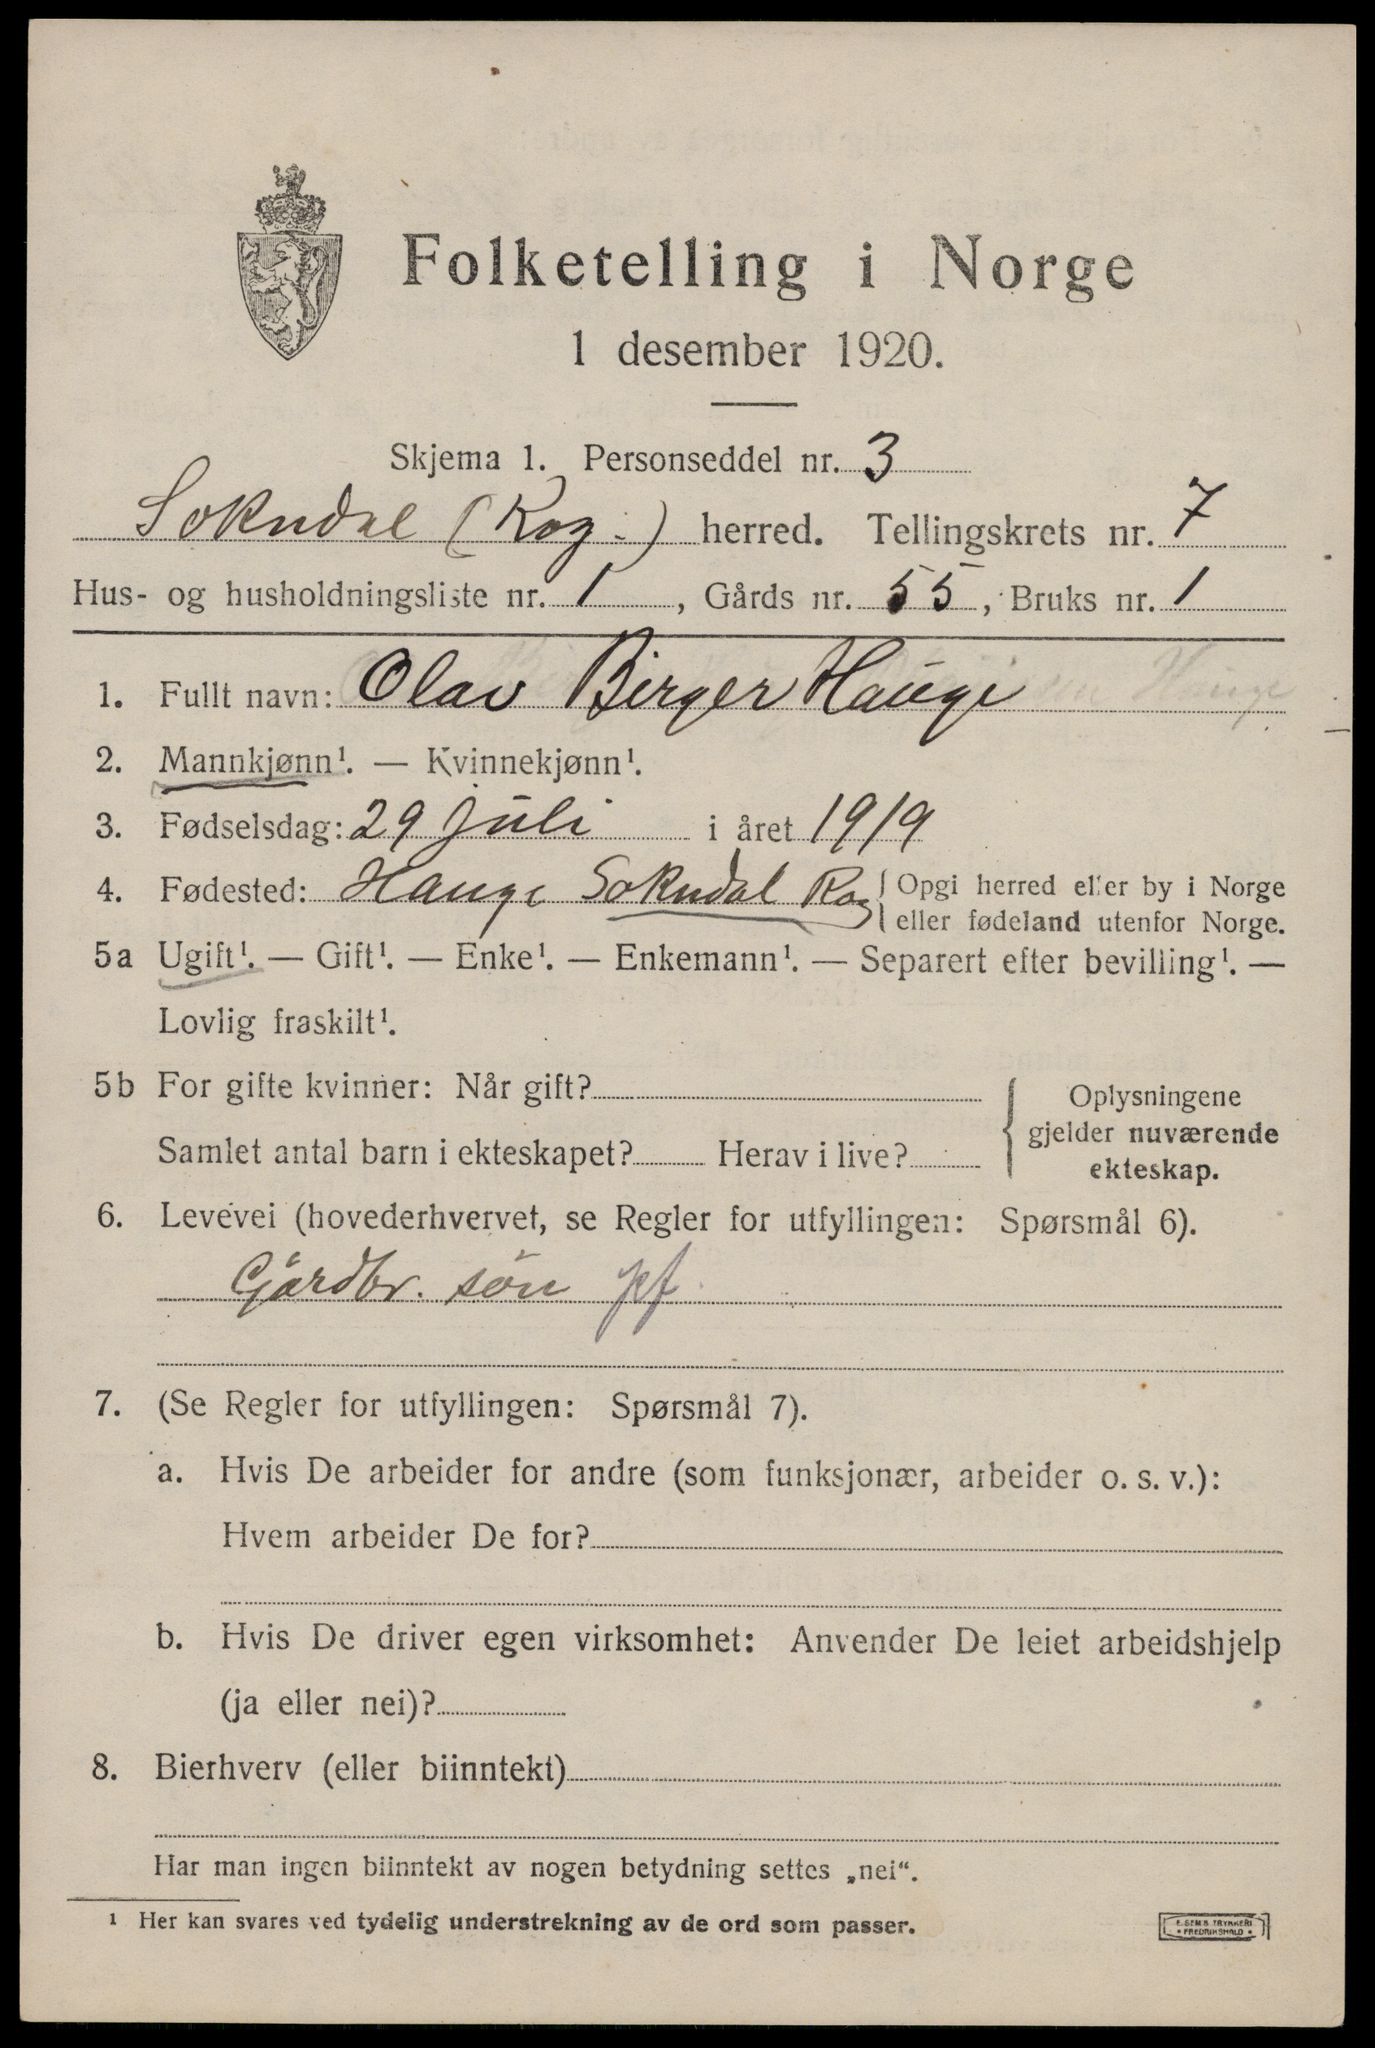 Folketelling i Norge
1 desember 1920.
Skjema 1. Personseddel nr. 3
Sokndal (Rog.) herred. Tellingskrets nr. 7
Hus- og husholdningsliste nr. 1, Gårds nr. 55, Bruks nr. 1
1. Fullt navn: Olav Birger Hauge
2. Mannkjønn¹. — Kvinnekjønn¹.
3. Fødselsdag: 29 juli i året 1919
4. Fødested: Hauge Sokndal Rog { Opgi herred eller by i Norge
eller fødeland utenfor Norge.
5a Ugift¹. — Gift¹. — Enke¹. — Enkemann¹. — Separert efter bevilling¹. —
Lovlig fraskilt¹.
5b For gifte kvinner: Når gift?
Samlet antal barn i ekteskapet? Herav i live?
{ Oplysningene
gjelder nuværende
ekteskap.
6. Levevei (hovederhvervet, se Regler for utfyllingen: Spørsmål 6).
Gårdbr. søn pf.
7. (Se Regler for utfyllingen: Spørsmål 7).
a. Hvis De arbeider for andre (som funksjonær, arbeider o. s. v.):
Hvem arbeider De for?
b. Hvis De driver egen virksomhet: Anvender De leiet arbeidshjelp
(ja eller nei)?
8. Bierhverv (eller biinntekt)
Har man ingen biinntekt av nogen betydning settes „nei".
¹ Her kan svares ved tydelig understrekning av de ord som passer.
E. SEM'S TRYKKERI
• FREDRIKSHALD •